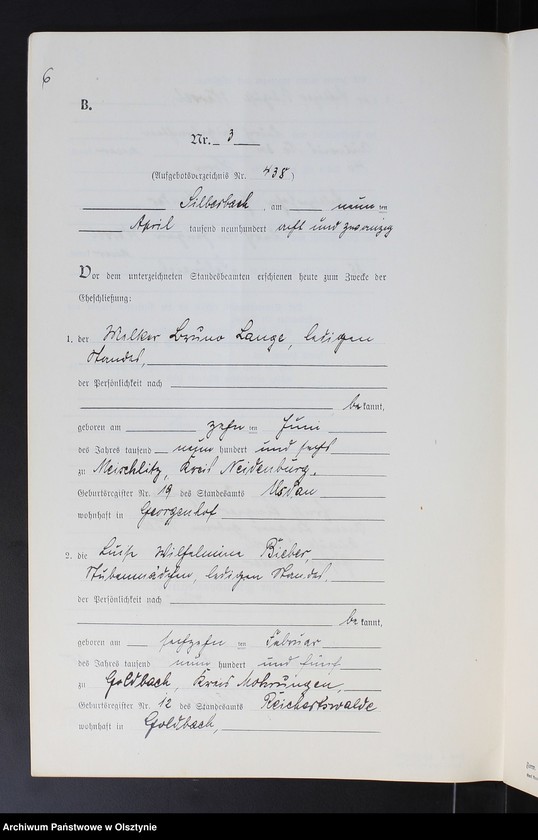 6
B.
Nr. 3
(Aufgebotsverzeichnis Nr. 438)
Silberbach, am neun ten
April tausend neunhundert acht und zwanzig
Vor dem unterzeichneten Standesbeamten erschienen heute zum Zwecke der
Eheschließung:
1. der Melker Bruno Lange, ledigen
Standes,
der Persönlichkeit nach
be kannt,
geboren am zehn ten Juni
des Jahres tausend neun hundert und sechs
zu Meischlitz, Kreis Neidenburg,
Geburtsregister Nr. 19 des Standesamts Usdau
wohnhaft in Georgenhof
2. die Luise Wilhelmine Bieber,
Stubenmädchen, ledigen Standes,
der Persönlichkeit nach
be kannt,
geboren am sechzehn ten Februar
des Jahres tausend neun hundert und fünf
zu Goldbach, Kreis Mohrungen,
Geburtsregister Nr. 12 des Standesamts Reichertswalde
wohnhaft in Goldbach,
Archiwum Państwowe w Olsztynie